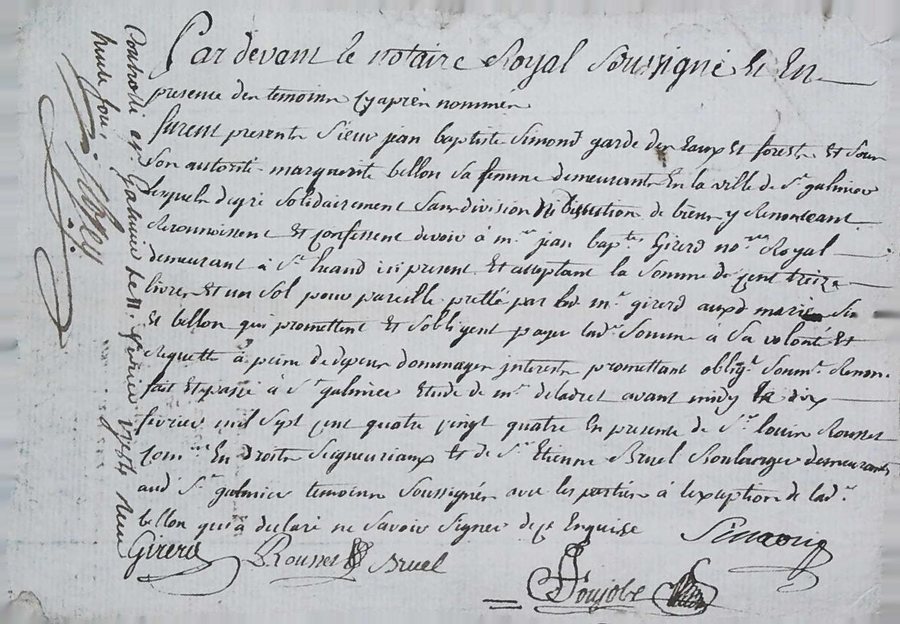 Par devant le notaire Royal Soussigné Et En
presence des temoins Cy apres nommés
furent presents Sieur jean baptiste Simond garde des Eaux Et forests Et Sous
Son autorité marguerite bellon Sa femme demeurants En la ville de St galmier
lesquels de gré Solidairement Sans division ni discution de biens y Renonceant
Reconnoissent Et Confessent devoir à mre jean bapte Girerd nore Royal
demeurant à St heand ici present Et acceptant la Somme de Cent treize
livres Et un Sol pour pareille prettée par led mr girerd auxd mariés
Et bellon qui promettent Et S'obligent payer lade Somme à Sa volonté Et
Requette à peine de depens dommages interests promettant oblign Soumn Renon
fait Et passé à St galmier Etude de me avant midy le dix
fevrier mil Sept Cent quatre vingt quatre En presence de Sr louis Rousset
Comre En droits Seigneuriaux Et de Sr Etienne Bruel Boulanger demeurants
aud St galmier temoins Soussignés avec les parties à l'exception de lade
bellon qui a declaré ne Savoir Signer de ce Enquise
Simond
Girerd Rousset Bruel
Controllé à St Galmier le 11 fevrier 1784 Reçu